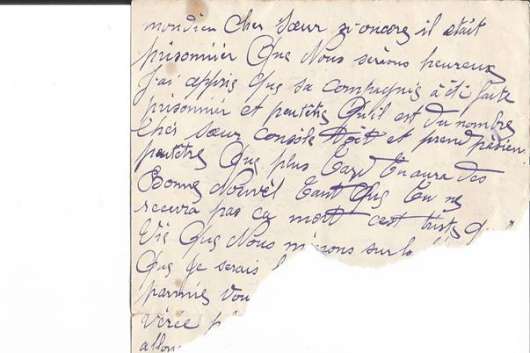 mondieu Cher Sœur si oncore il était
prisonniér Que Nous serions heureux
J'ai appris Que sa compagnie à été faite
prisonniér et peutétre Qu'il est du nombre
Cher sœur console toit et prend
peutétre Que plus tard tu aura des
Bonne Nouvél tant Que tu ne
recevra pas ce mort c'est triste
Vie Que Nous menons sur
Que je serais
parmies vou